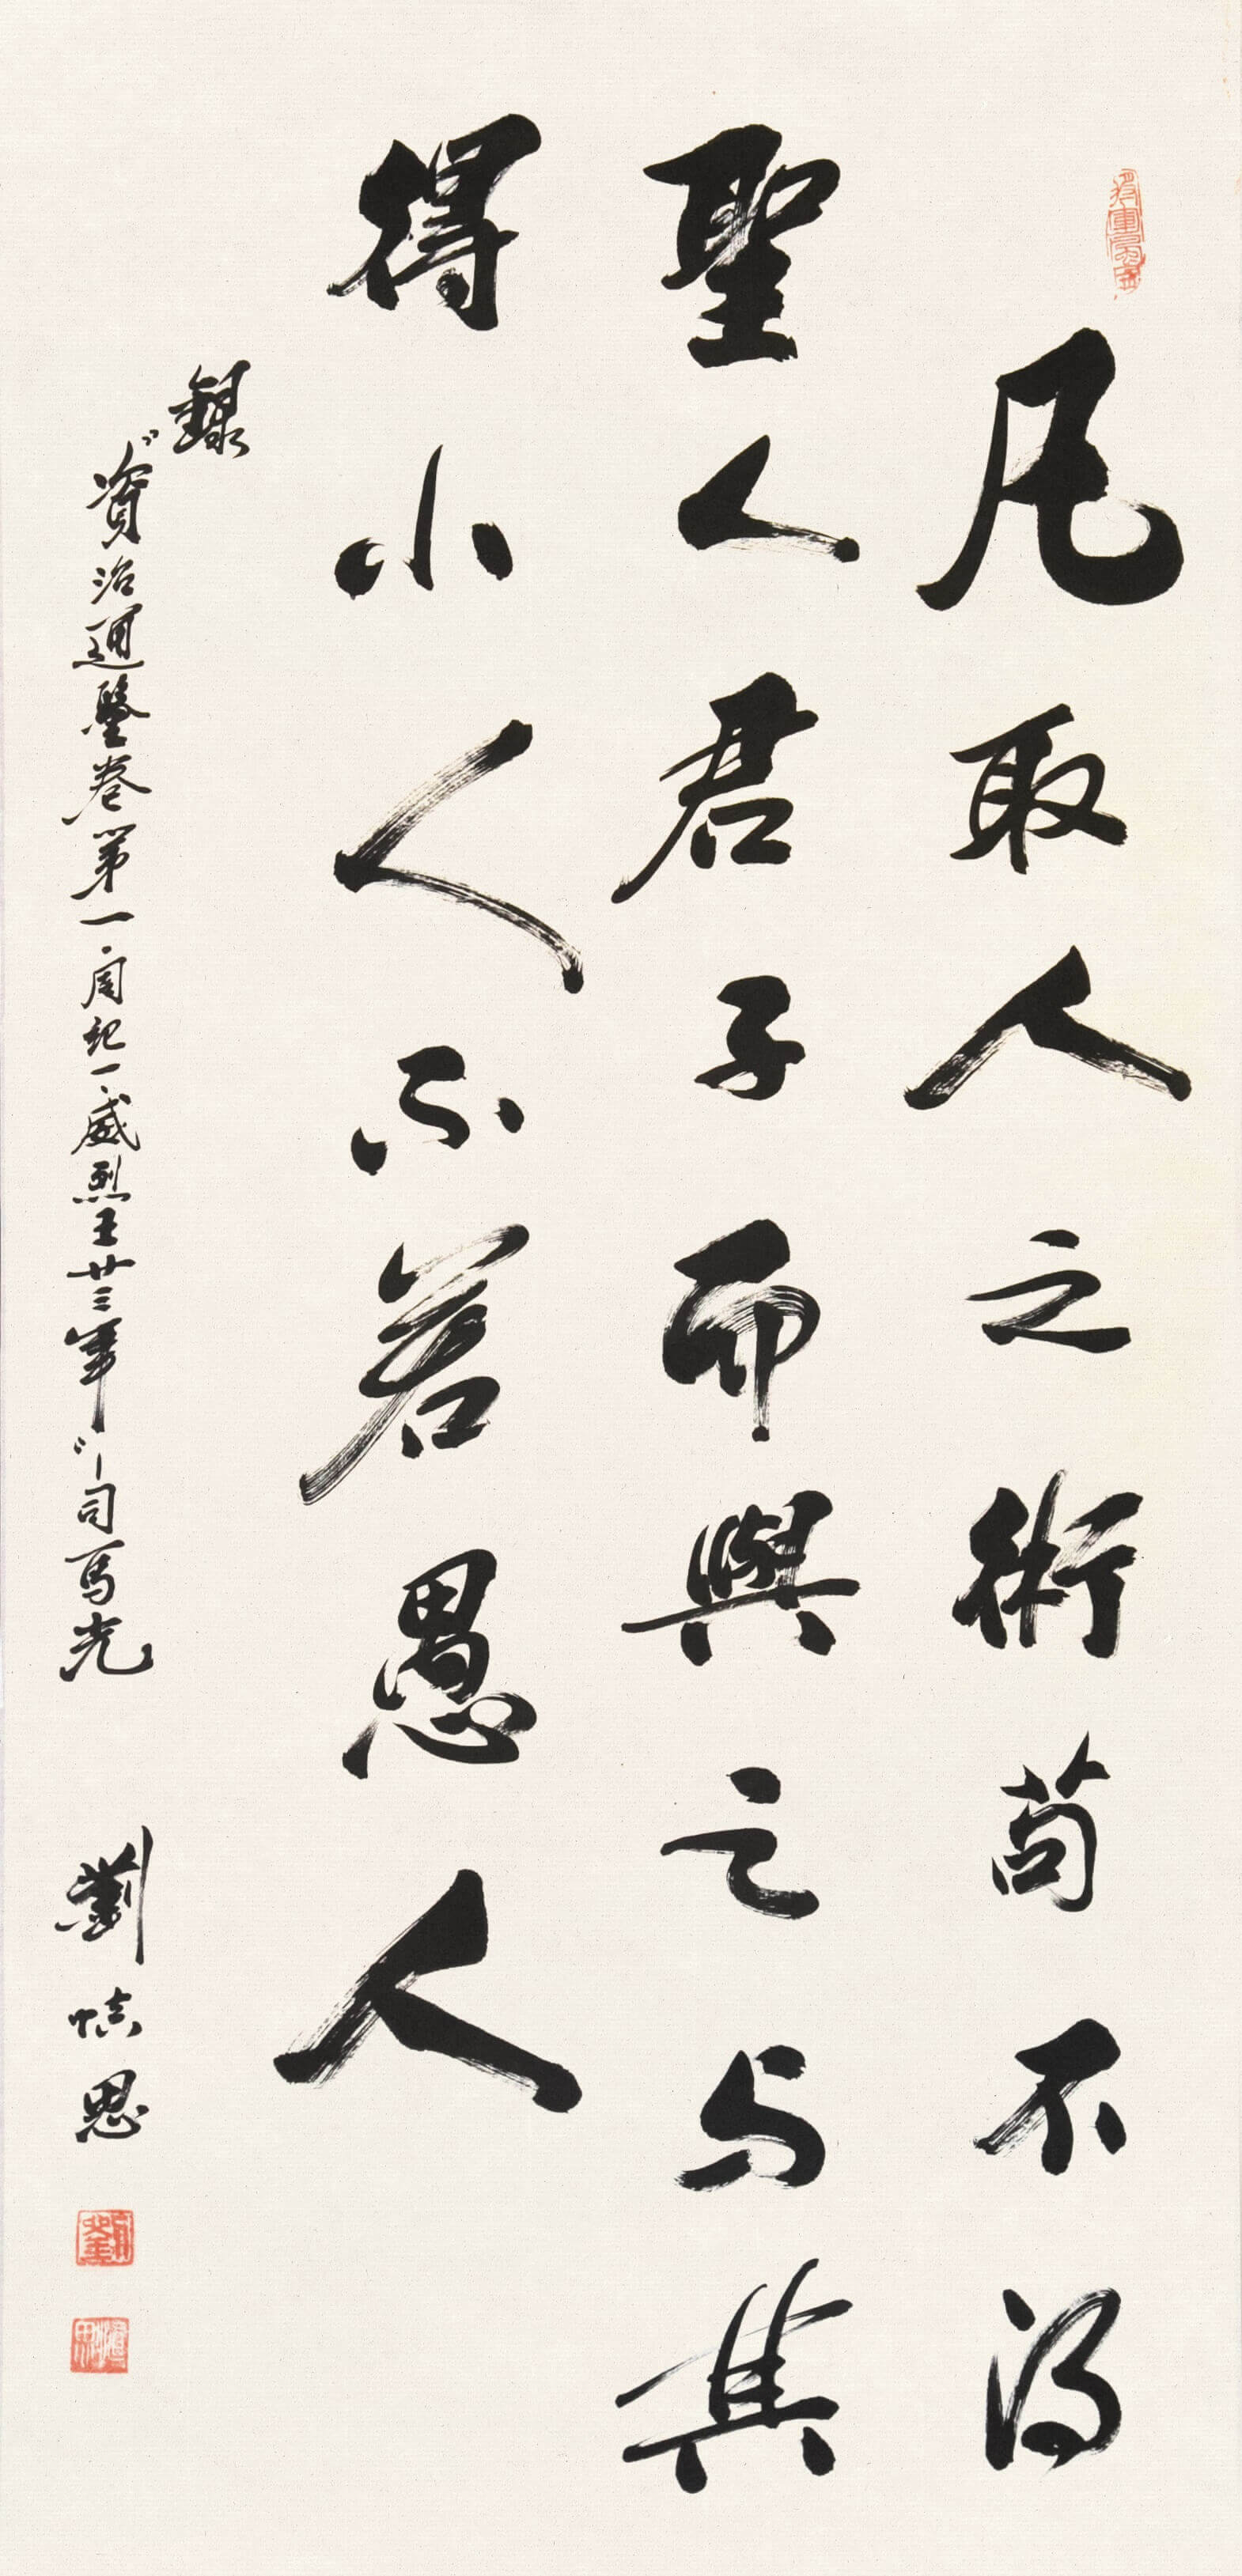 凡取人之術苟不得
聖人君子而與之与其
得小人不若愚人
錄
"資治通鑒卷第一·周紀一·威烈王廿三年"—司马光
劉慎思